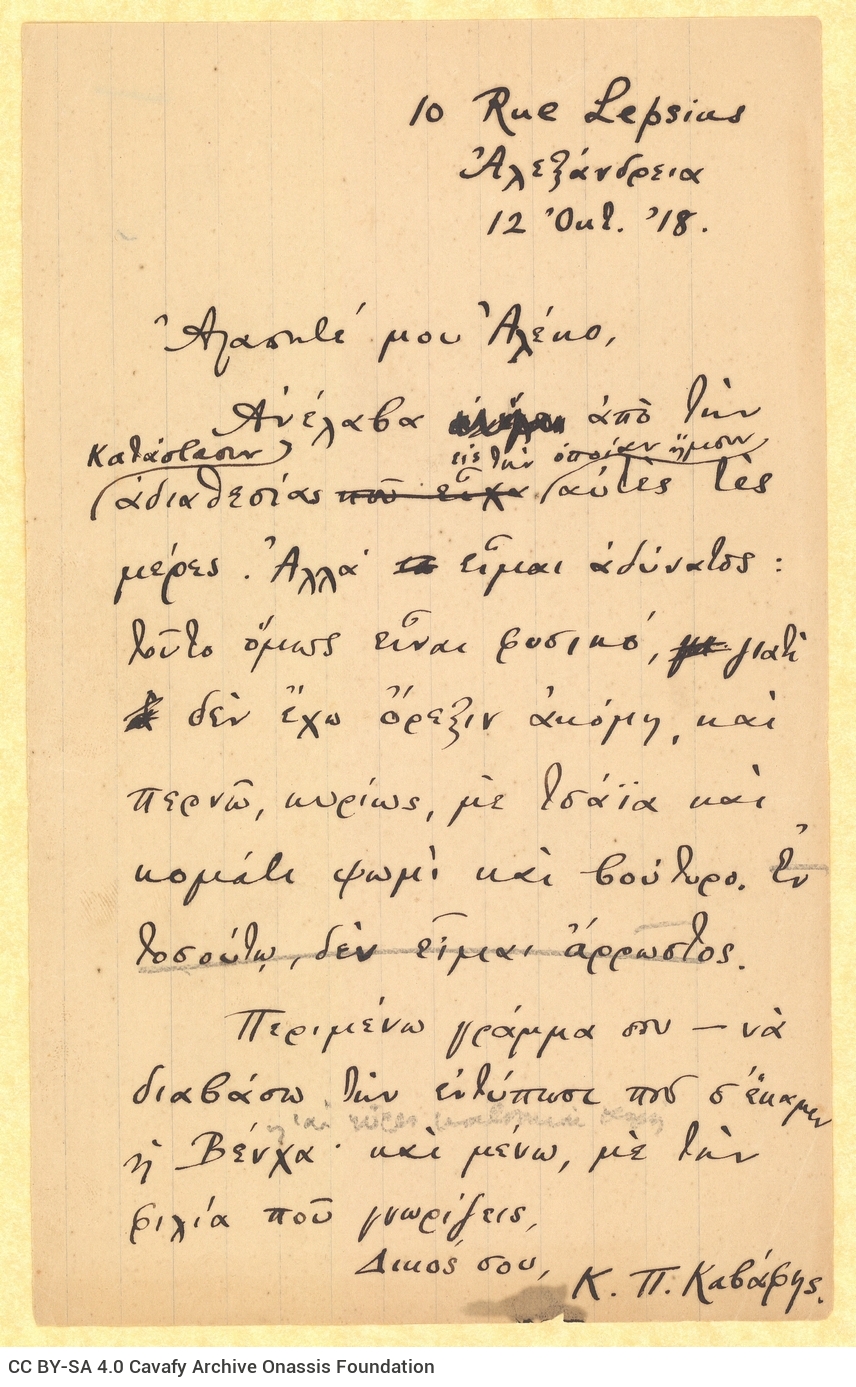 10 Rue Lepsius
Ἀλεξάνδρεια
12 Ὀκτ. '18.
Ἀγαπητέ μου Ἀλέκο,
Ἀνέλαβα ἀπὸ τὴν
κατάστασιν εἰς τὴν ὁποίαν ἤμουν
ἀδιαθεσίας ποῦ εἶχα αὐτὲς τὲς
μέρες. Ἀλλὰ εἶμαι ἀδύνατος:
τοῦτο ὅμως εἶναι φυσικό, γιατὶ
δὲν ἔχω ὄρεξιν ἀκόμη, καὶ
περνῶ, κυρίως, μὲ τσάϊα καὶ
κομάτι ψωμὶ καὶ βούτυρο. Ἐν
τοσούτῳ, δὲν εἶμαι ἄρρωστος.
Περιμένω γράμμα σου — νὰ
διαβάσω τὴν ἐντύπωσι ποῦ σ' ἔκαμεν
ἡ Βένχα· καὶ μένω, μὲ τὴν
φιλία ποῦ γνωρίζεις,
Δικός σου,
Κ. Π. Καβάφης.
CC BY-SA 4.0 Cavafy Archive Onassis Foundation